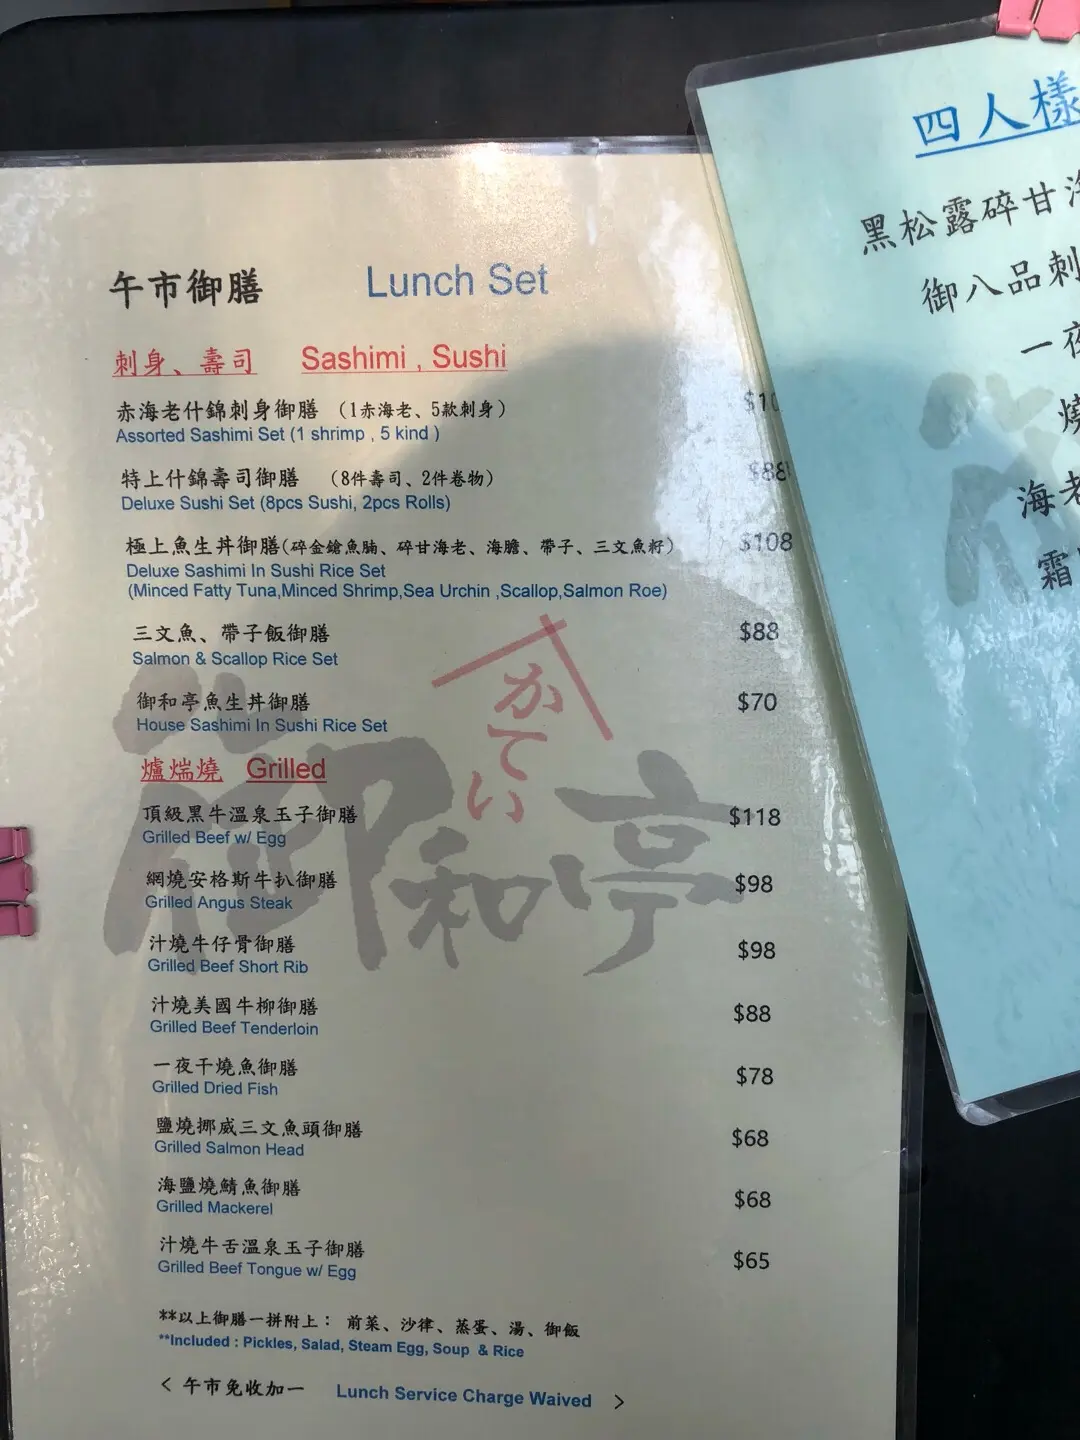 午市御膳 Lunch Set
刺身、壽司 Sashimi , Sushi
赤海老什錦刺身御膳 (1赤海老、5款刺身)
Assorted Sashimi Set (1 shrimp , 5 kind )
特上什錦壽司御膳 (8件壽司、2件卷物) $88
Deluxe Sushi Set (8pcs Sushi, 2pcs Rolls)
極上魚生丼御膳(碎金鎗魚腩、碎甘海老、海膽、帶子、三文魚籽) $108
Deluxe Sashimi In Sushi Rice Set
(Minced Fatty Tuna,Minced Shrimp,Sea Urchin ,Scallop,Salmon Roe)
三文魚、帶子飯御膳 $88
Salmon & Scallop Rice Set
御和亭魚生丼御膳 $70
House Sashimi In Sushi Rice Set
爐端燒 Grilled
頂級黑牛溫泉玉子御膳 $118
Grilled Beef w/ Egg
網燒安格斯牛扒御膳 $98
Grilled Angus Steak
汁燒牛仔骨御膳 $98
Grilled Beef Short Rib
汁燒美國牛柳御膳 $88
Grilled Beef Tenderloin
一夜干燒魚御膳 $78
Grilled Dried Fish
鹽燒挪威三文魚頭御膳 $68
Grilled Salmon Head
海鹽燒鯖魚御膳 $68
Grilled Mackerel
汁燒牛舌溫泉玉子御膳 $65
Grilled Beef Tongue w/ Egg
**以上御膳一拼附上： 前菜、沙律、蒸蛋、湯、御飯
**Included : Pickles, Salad, Steam Egg, Soup & Rice
< 午市免收加一 Lunch Service Charge Waived >
かてい
御和亭
四人樣
黑松露碎甘
御八品刺
一夜
燒
海老
霜